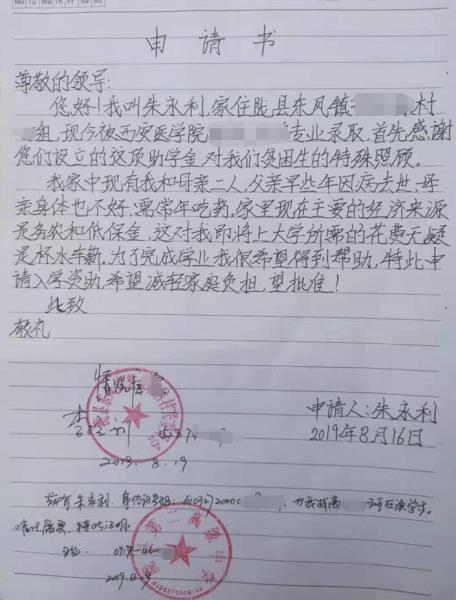 Mo Tu We Th Fr Sa Su
申请书
尊敬的领导:
您好!我叫朱永利,家住陇县东风镇村
组,现今被西安医学院专业录取,首先感谢
您们设立的这项助学金,对我们贫困生的特殊照顾。
我家中现有我和母亲二人,父亲早些年因病去世,母
亲身体也不好,需常年吃药,家里现在主要的经济来源
是务农和低保金,这对我即将上大学所需的花费无疑
是杯水车薪。为了完成学业我很希望得到帮助,特此申
请入学资助,希望减轻家庭负担,望批准!
此致
敬礼
情况
申请人:朱永利
2019年8月16日
2019.8.19
兹有朱永利,身份证号码:6103272000,为我校高级在读学生。
情况属实,特此证明。
第二高级中学
2019.8.19